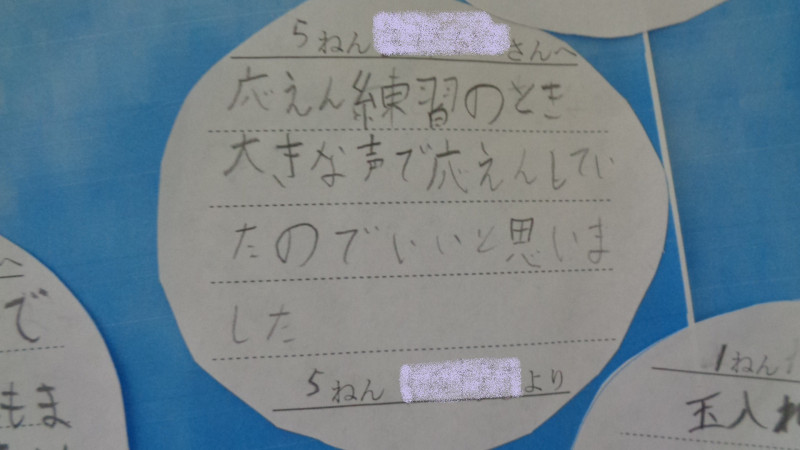 5ねん さんへ
応えん練習のとき
大きな声で応えんしてい
たのでいいと思いま
した
5ねん より
へ
で
もま
1ねん
玉入れ